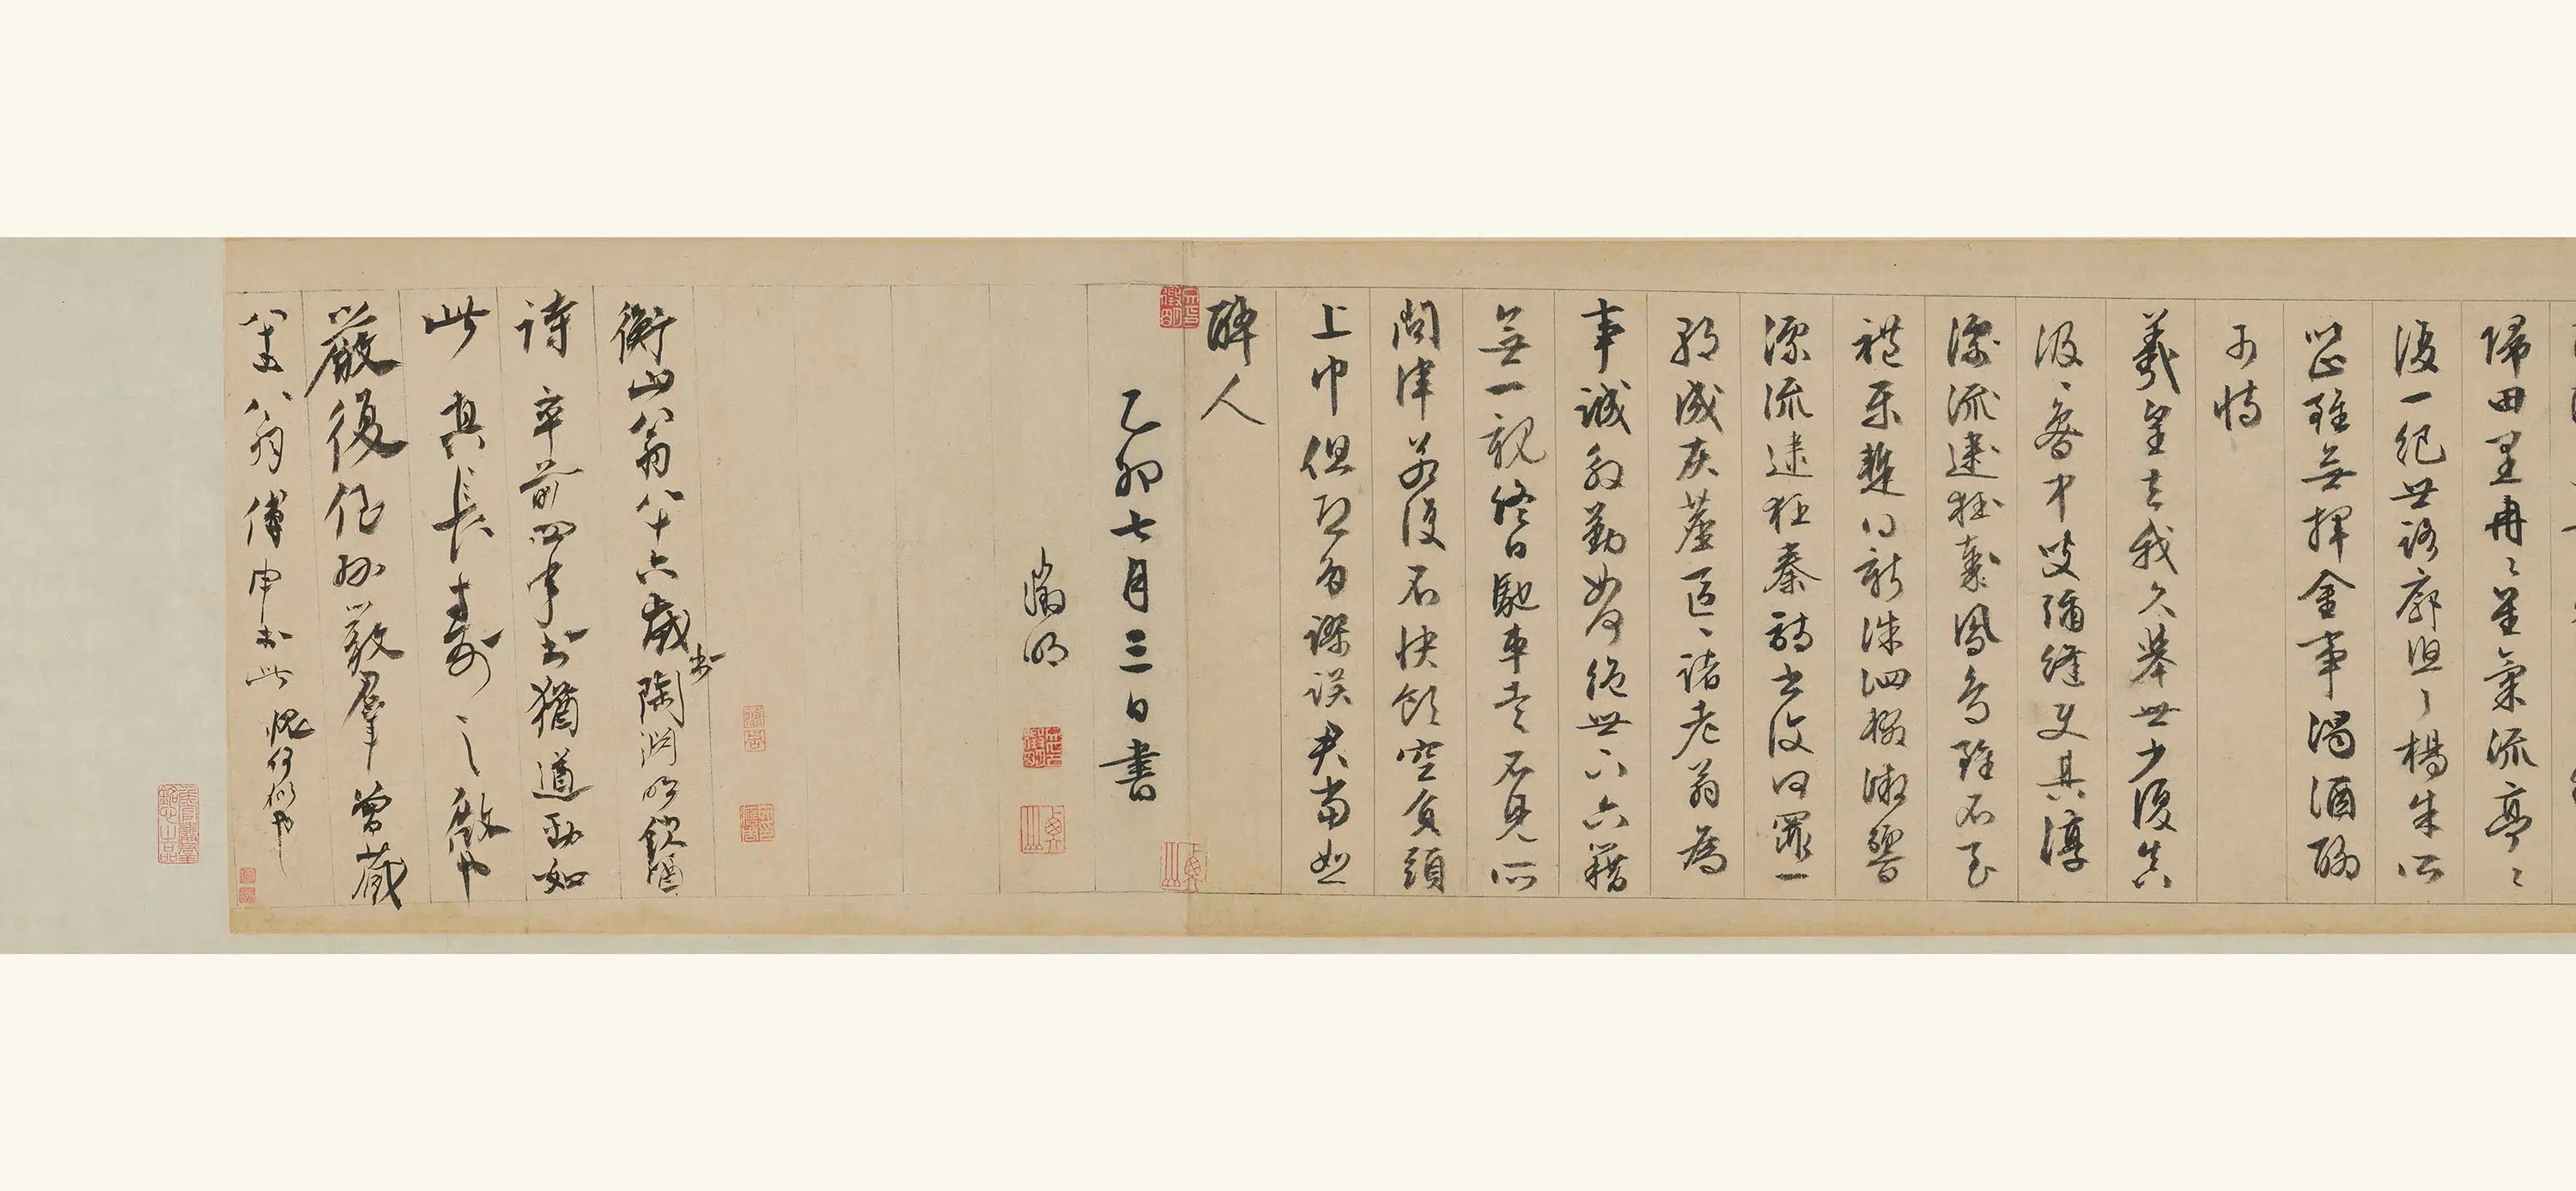 歸田里冉〻星氣流亭〻
復一紀世路廓悠〻楊朱所
以止雖無揮金事濁酒聊
可恃
羲皇去我久舉世少復真
汲〻魯中叟彌縫使其淳
漂流逮狂秦鳳鳥雖不至
禮樂暫得新洙泗輟微響
漂流逮狂秦詩書復何罪一
朝成灰塵區〻諸老翁為
事誠殷勤如何絕世下六籍
無一親終日馳車走不見所
問津若復不快飲空負頭
上巾但恨多謬誤君當恕
醉人
乙卯七月三日書
徵明
衡山翁八十六歲書陶淵明飲酒
詩卒前四年書猶遒勁如
此真長壽之徵也
嚴復侄孫嚴群曾藏
八翁傅申書此愧何似也